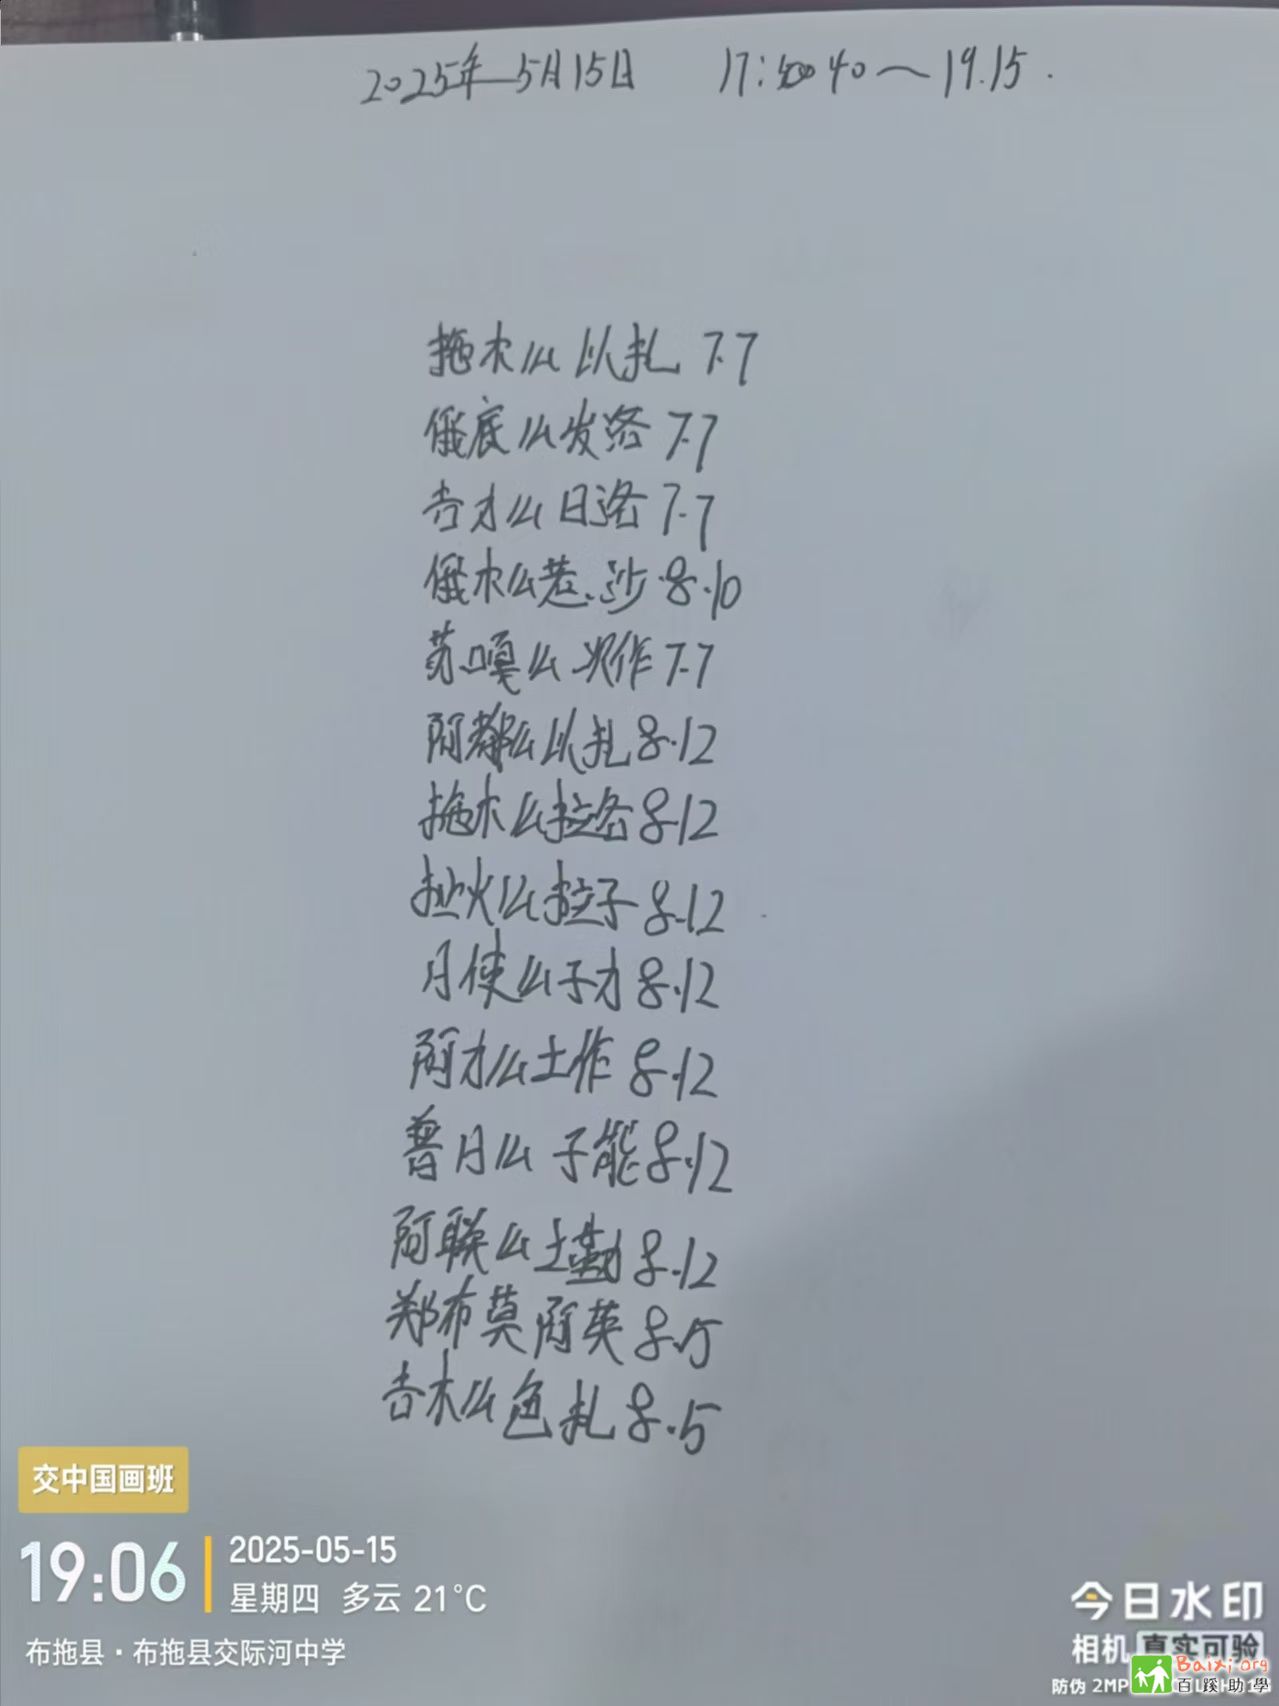 2025年5月15日 17:40~19.15.
拖木么以扎 7.7
俄底么发洛 7.7
吉才么日洛 7.7
俄木么惹沙 8.10
苏嘎么次作 7.7
阿都么以扎 8.12
拖木么拉各 8.12
火么拉子 8.12
月使么子才 8.12
阿才么土作 8.12
普月么子能 8.12
阿联么土勤 8.12
郑布莫阿英 8.5
吉木么色扎 8.5
交中国画班
19:06
2025-05-15
星期四 多云 21°C
布拖县·布拖县交际河中学
今日水印
相机 真实可验
防伪 2MP
Baixi.org
百蹊助學